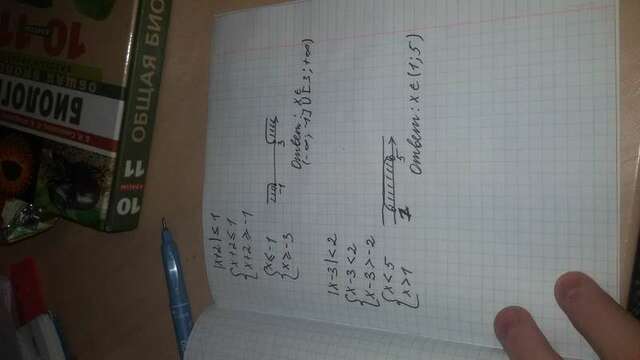 БИОЛОГ
ОБЩАЯ БИОЛ
10-11
10
11
ОБЩАЯ БИО
|x+2| ≤ 1
{x+2 ≤ 1
{x+2 ≥ -1
{x ≤ -1
{x ≥ -3
-1 3
Ответ: x ∈
(-∞; -1] U [3; +∞)
|x-3| < 2
{x-3 < 2
{x-3 > -2
{x < 5
{x > 1
1 5
Ответ: x ∈ (1; 5)